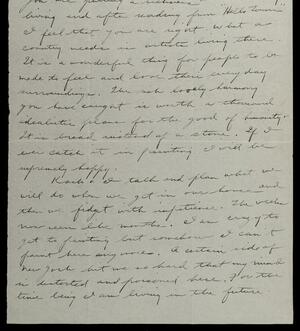 living and after reading from "Hello Towns"
I feel that you are right. What a
country needs is artists living there.
It is a wonderful thing for people to be
made to feel and love their every day
surroundings. The rich lovely harmony
you have caught is worth a thousand
idealistic plans for the good of humanity.
It is bread instead of a stone. If I
ever catch it in painting I will be
supremely happy.
& I talk and plan what we
will do when we get in our house and
then we fidget with impatience. The weeks
now seem like months. I am crazy to
get to painting but somehow I can't
paint here any more. A certain side of
New York hit me so hard that my mind
is distorted and poisoned here. For the
time being I am living in the future